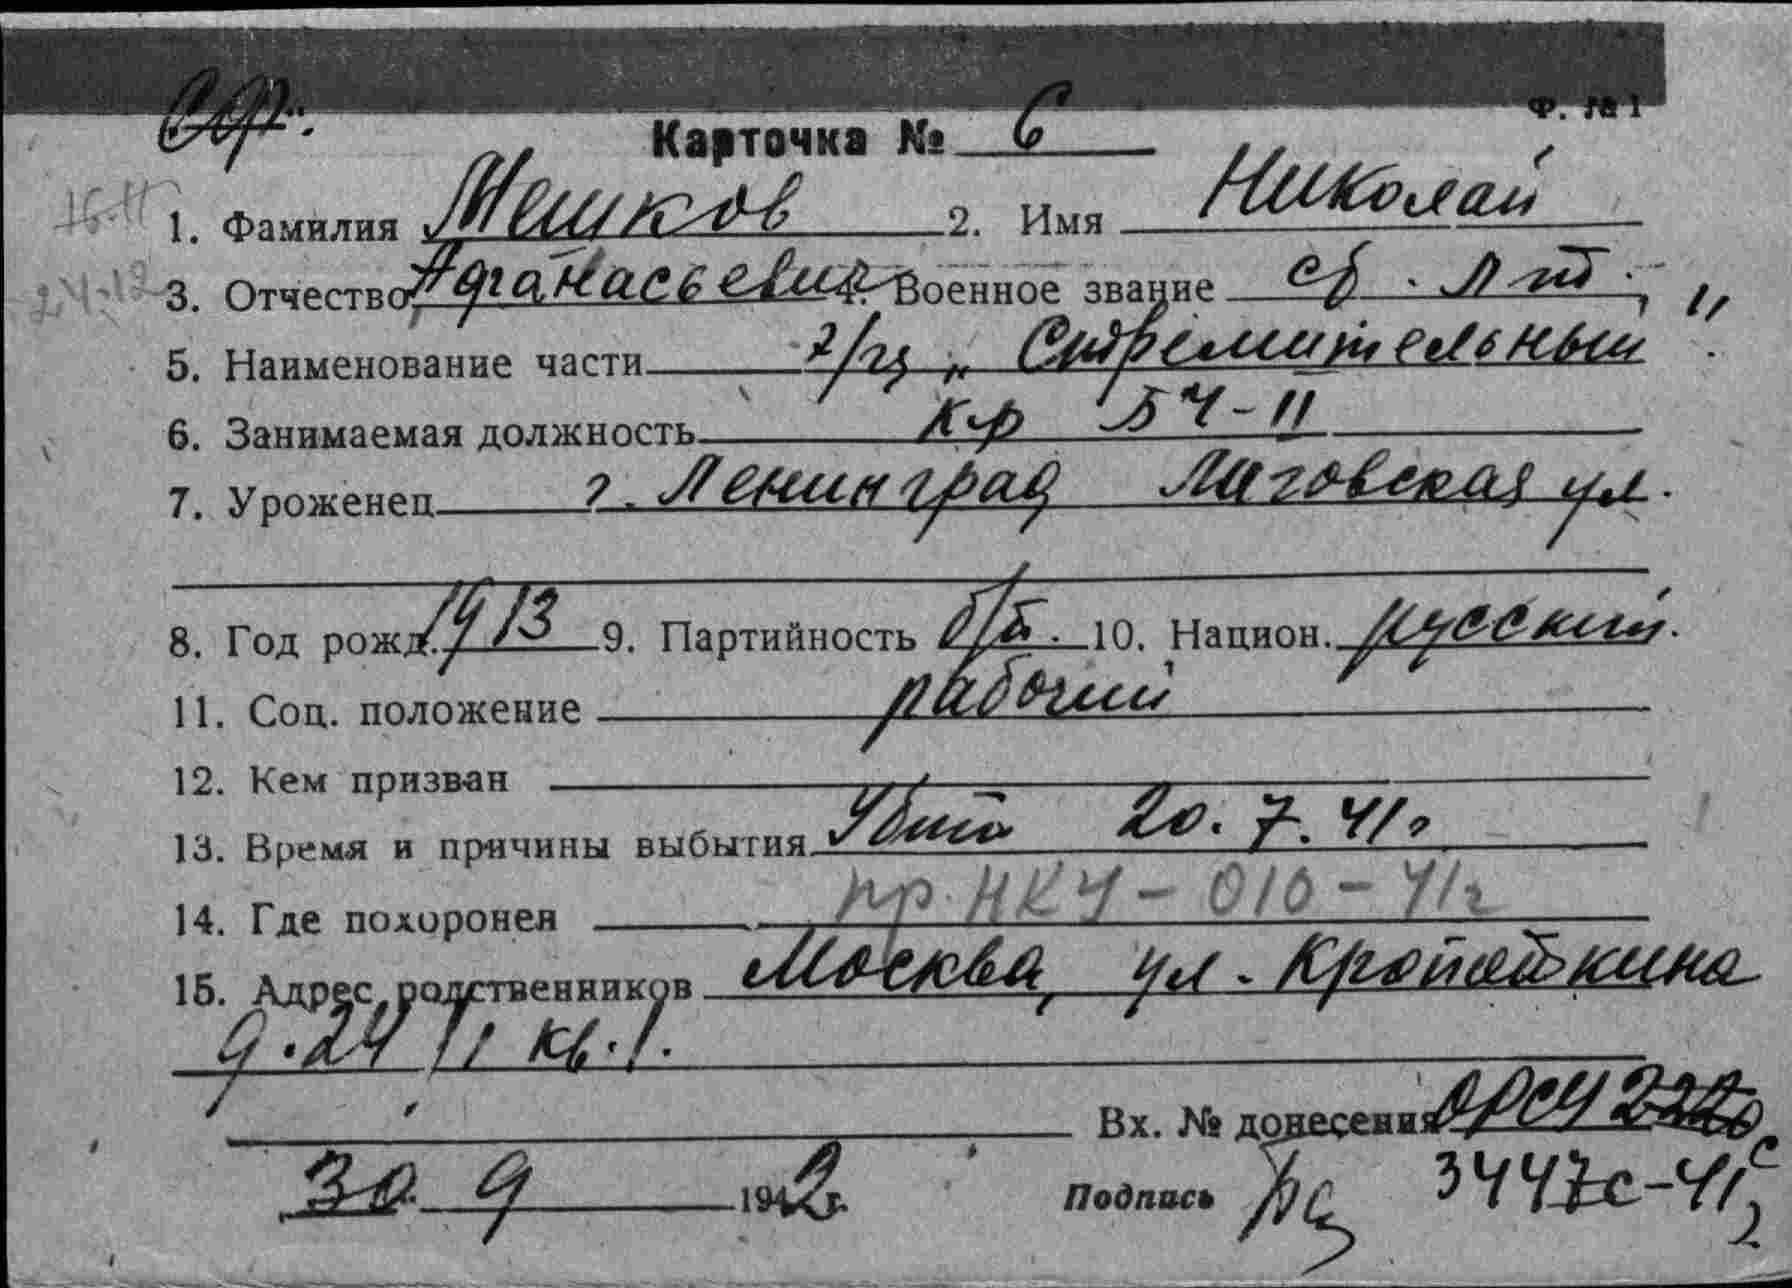 Ф. № 1
Карточка № 6
1. Фамилия Мешков 2. Имя Николай
3. Отчество Афанасьевич 4. Военное звание ст. л-т
5. Наименование части э/м „Стремительный"
6. Занимаемая должность к-р БЧ-II
7. Уроженец г. Ленинград Лиговская ул.
8. Год рожд. 1913 9. Партийность б/п. 10. Национ. русский.
11. Соц. положение рабочий
12. Кем призван
13. Время и причины выбытия Убит 20.7.41г
пр. НКУ-010-41г
14. Где похоронен
15. Адрес родственников Москва, ул. Кропоткина
д. 24/1 кв. 1.
Вх. № донесения
30 9 1942г.
Подпись
3447с-41